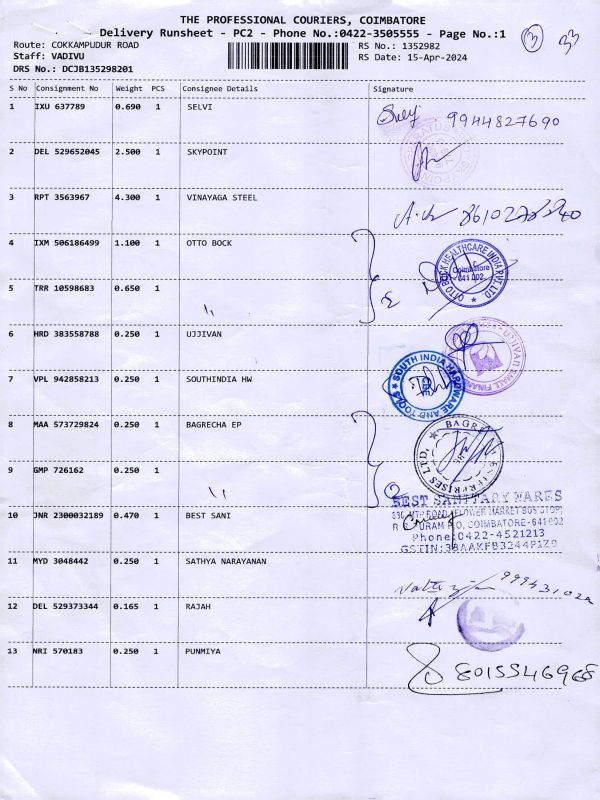 THE PROFESSIONAL COURIERS, COIMBATORE
Delivery Runsheet - PC2 - Phone No.:0422-3505555 - Page No.:1
3 33
Route: COKKAMPUDUR ROAD
RS No.: 1352982
Staff: VADIVU
RS Date: 15-Apr-2024
DRS No.: DCJB135298201
S No Consignment No Weight PCS Consignee Details Signature
1 IXU 637789 0.690 1 SELVI 9944827690
2 DEL 529652045 2.500 1 SKYPOINT
3 RPT 3563967 4.300 1 VINAYAGA STEEL
4 IXM 506186499 1.100 1 OTTO BOCK
OTTO BOCK HEALTHCARE INDIA PVT. LTD
Coimbatore
641 002.
5 TRR 10598683 0.650 1 "
6 HRD 383558788 0.250 1 UJJIVAN
7 VPL 942858213 0.250 1 SOUTHINDIA HW
SOUTH INDIA HARDWARE AND TOOLS
8 MAA 573729824 0.250 1 BAGRECHA EP
9 GMP 726162 0.250 1 "
10 JNR 2300032189 0.470 1 BEST SANI
BEST SANITARY WARES
COIMBATORE-641002
Phone:0422-4521213
11 MYD 3048442 0.250 1 SATHYA NARAYANAN
12 DEL 529373344 0.165 1 RAJAH
13 NRI 570183 0.250 1 PUNMIYA 8015546968